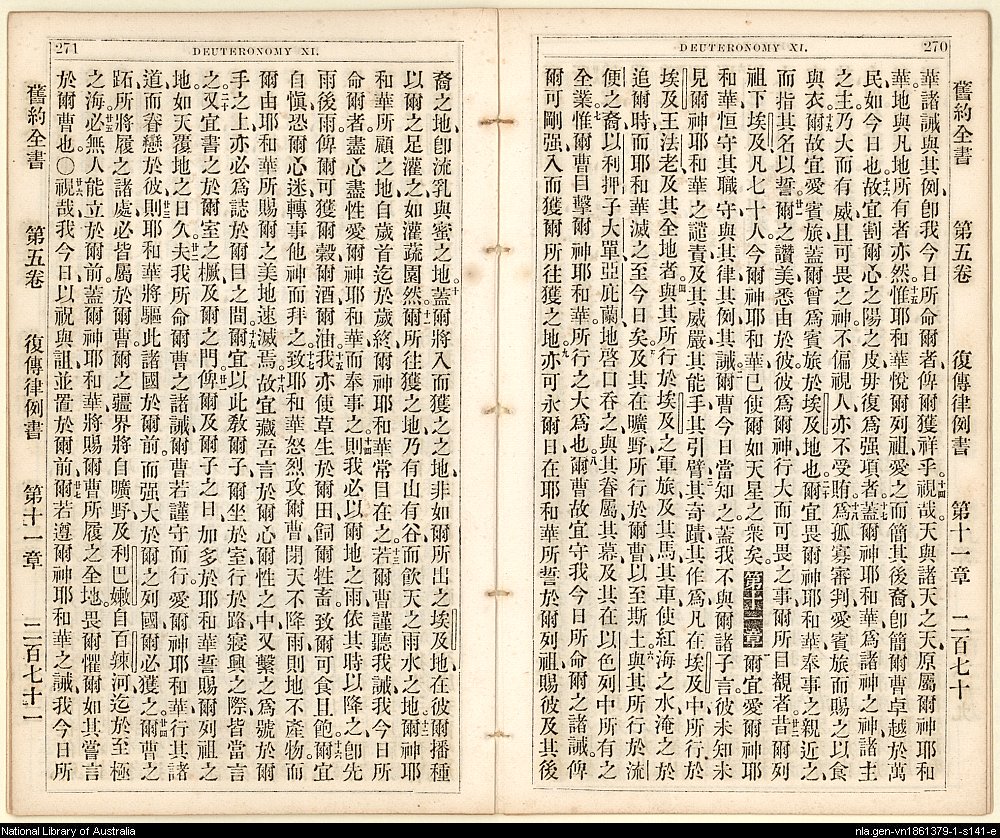 270
DEUTERONOMY XI.
舊約全書 第五卷 復傳律例書 第十一章 二百七十
華諸誡與其例、卽我今日所命爾者、俾爾獲祥乎。視哉。天與諸天之天、原屬爾神耶和
華、地與凡地所有者亦然。惟耶和華悅爾列祖、愛之、而簡其後裔、卽簡爾曹卓越於萬
民、如今日也。故宜割爾心之陽之皮、毋復爲强項者。蓋爾神耶和華爲諸神之神、諸主
之主、乃大而有威且可畏之神、不偏視人、亦不受賄、爲孤寡審判、愛賓旅而賜之以食
與衣。爾故宜愛賓旅、蓋爾曾爲賓旅於埃及地也。爾宜畏爾神耶和華、奉事之、親近之、
而指其名以誓。爾之讚美悉由於彼、彼爲爾神、行大而可畏之事、爾所目覩者。昔爾列
祖下埃及、凡七十人、今爾神耶和華已使爾如天星之衆矣。第十一章 爾宜愛爾神耶
和華、恒守其職守、與其律其例其誡。爾曹今日當知之、蓋我不與爾諸子言、彼未知未
見爾神耶和華之譴責、及其威嚴、其能手、其引臂、其奇蹟、其作爲、凡在埃及中所行於
埃及王法老及其全地者、與其所行於埃及之軍旅、及其馬、其車、使紅海之水淹之於
追爾時、而耶和華滅之、至今日矣、及其在曠野所行於爾曹、以至斯土、與其所行於流
便之裔以利押子大單亞庇蘭、地啓口吞之、與其眷屬、其幕、及其在以色列中所有之
全業。惟爾曹目擊耶和華所行之大爲也。爾曹故宜守我今日所命爾之諸誡、俾
爾可剛强、入而獲爾所往獲之地、亦可永爾日在耶和華所誓於爾列祖賜彼及其後
271
DEUTERONOMY XI.
裔之地、卽流乳與蜜之地。蓋爾將入而獲之之地、非如爾所出之埃及地、在彼爾播種
以爾之足灌之、如灌蔬園然。爾所往獲之地、乃有山有谷、而飮天之雨水之地、爾神耶
和華所顧之地、自歲首迄於歲終、爾神耶和華常目在之。若爾曹謹聽我誡、我今日所
命爾者、盡心盡性愛爾神耶和華而奉事之、則我必以爾地之雨依其時以降之、卽先
雨後雨、俾爾可獲爾穀爾酒爾油。我亦使草生於爾田、飼爾牲畜、致爾可食且飽。爾宜
自愼、恐爾心迷、轉事他神而拜之、致耶和華怒烈攻爾曹、閉天不降雨、則地不產物、而
爾由耶和華所賜爾之美地速滅焉。故宜藏吾言於爾心爾性之中、又繫之爲號於爾
手之上、亦必爲誌於爾目之間。爾宜以此敎爾子、爾坐於室、行於路、寢興之際、皆當言
之。又宜書之於爾室之橛及爾之門、俾爾及爾子之日加多、於耶和華誓賜爾列祖之
地、如天覆地之日久。夫我所命爾曹之諸誡、爾曹若謹守而行、愛爾神耶和華、行其諸
道、而眷戀於彼、則耶和華將驅此諸國於爾前、而强大於爾之列國爾必獲之。爾曹之
跖所將履之諸處、必皆屬於爾曹、爾之疆界將自曠野及利巴嫩、自百辣河迄於至極
之海。必無人能立於爾前、蓋爾神耶和華將賜爾曹所履之全地、畏爾懼爾、如其嘗言
於爾曹也。〇視哉、我今日以祝與詛並置於爾前。爾若遵爾神耶和華之誡、我今日所
舊約全書 第五卷 復傳律例書 第十一章 二百七十一
National Library of Australia
nla.gen-vn1861379-1-s141-e